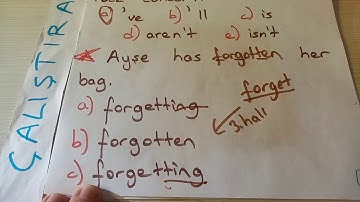 a) 've b) 'll c) is
d) aren't e) isn't
Ayse has forgotten her
bag.
forget
a) forgetting
3. hali
b) forgotten
c) forgetting
ÇALIŞTIRA